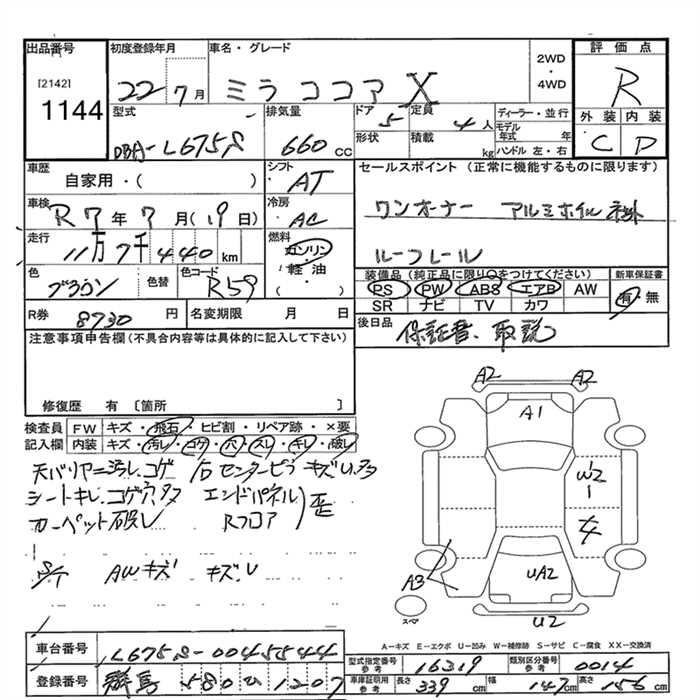 出品番号
[2142]
1144
初度登録年月
22年7月
車名・グレード
ミラ ココア X
2WD
・
4WD
評価点
R
外装 内装
C D
型式
DBA-L675S
排気量
660 cc
ドア 5 定員 4人
形状 積載 kg
ディーラー・並行
モデル年式 年
ハンドル 左・右
車歴
自家用・( )
シフト
AT
セールスポイント (正常に機能するものに限ります)
ワンオーナー アルミホイル
ルーフレール
車検
R7年7月(19日)
冷房
AC
走行
11万7千440km
燃料
ガソリン
軽油
( )
色
ブラウン
色替
色コード
R59
装備品 (純正品に限り○をつけてください)
PS PW ABS エアB AW
SR ナビ TV カワ
新車保証書
有・無
R券 8730円 名変期限 月 日
後日品
保証書、取説
注意事項申告欄(不具合内容等は具体的に記入して下さい)
修復歴 有〔箇所 〕
検査員記入欄
FW キズ・飛石・ヒビ割・リペア跡・×要
内装 キズ・汚れ・コゲ・穴・スレ・キレ・破レ
天バリヤニ汚レ、コゲ
シートキレ、コゲ穴
カーペット破レ
右センターピラ キズ
エンドパネル
Rフロア
歪
S/T AWキズ キズ.U
A2 A2
A1
W2
UA2
A3
U2
スペア
A-キズ E-エクボ U-凹み W-補修跡 S-サビ C-腐食 XX-交換済
車台番号 L675S-0045544
登録番号 群馬 580 ひ 1207
型式指定番号 参考 16319
類別区分番号 参考 0014
車庫証明用 参考 長さ 339cm 幅 147cm 高さ 156cm